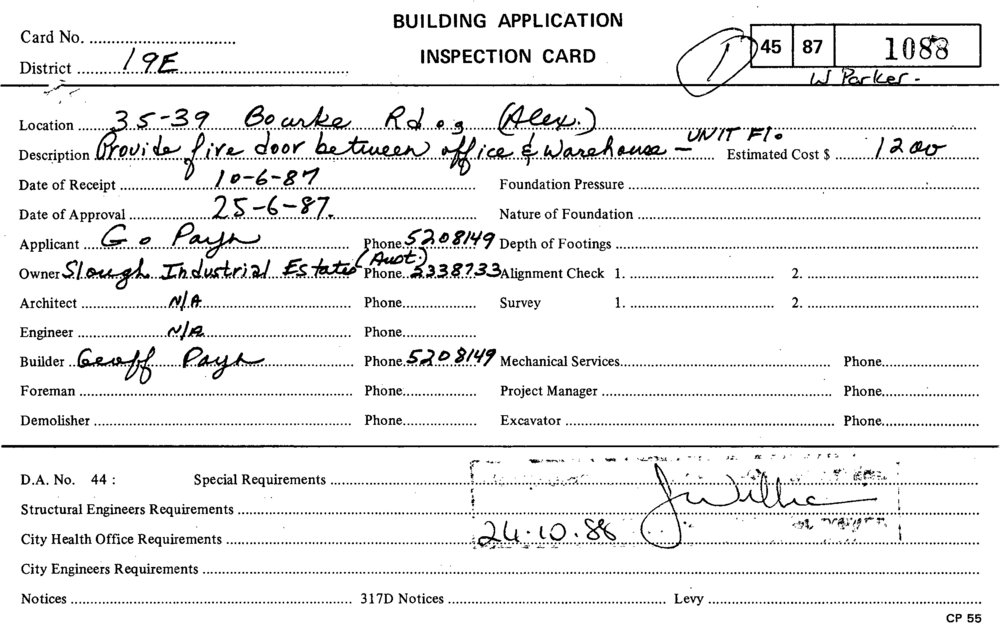 BUILDING APPLICATION
Card No.
INSPECTION CARD
45 87 1088
District 19E
W Parker -
Location 35-39 Bourke Rd. (Alex.)
Description Provide fire door between office & Warehouse - UNIT F1. Estimated Cost $ 1200
Date of Receipt 10-6-87 Foundation Pressure
Date of Approval 25-6-87. Nature of Foundation
Applicant G. Payn Phone 5208149 Depth of Footings
Owner Slough Industrial Estates (Aust.) Phone 2338733 Alignment Check 1. 2.
Architect N/A Phone Survey 1. 2.
Engineer N/A Phone
Builder Geoff Payn Phone 5208149 Mechanical Services Phone
Foreman Phone Project Manager Phone
Demolisher Phone Excavator Phone
D.A. No. 44 : Special Requirements
Structural Engineers Requirements
City Health Office Requirements 24.10.88
City Engineers Requirements
Notices 317D Notices Levy
CP 55